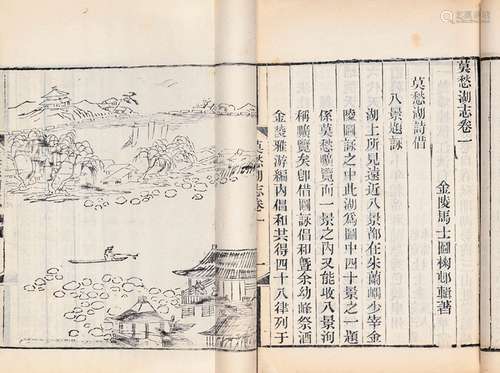 莫愁湖志卷一
金陵馬士圖掬邨輯著
莫愁湖詩借
八景題詠
湖上所見遠近八景都在朱蘭嵎少宰金
陵圖詠之中此湖爲圖中四十景之一題
係莫愁曠覽而一景之內又能收八景洵
稱曠覽矣卽借圖詠倡和曁余幼峰祭酒
金陵雅游編內倡和共得四十八律列于
莫愁湖志卷一